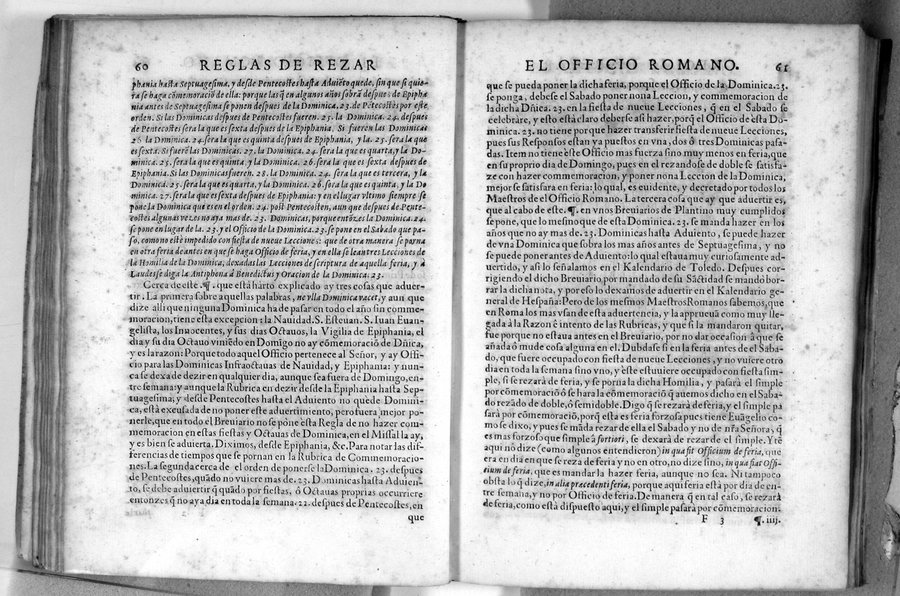 60 REGLAS DE REZAR
phania hasta Septuagesima, y desde Pentecostes hasta Aduiẽto quede, sin que se quie-
ra se haga cõmemoracion de ella: porque las q̃ en algunos años sobrã despues de Epipha
nia antes de Septuagesima se ponen despues de la Dominica. 23. de Pẽtecostes por este
orden. Si las Dominicas despues de Pentecostes fueren. 25. la Dominica. 24. despues
de Pentecostes sera la que es sexta despues de la Epiphania. Si fuerẽn las Dominicas
26 la Dominica. 24. sera la que es quinta despues de Epiphania, y la. 25. sera la que
es sexta. Si fuerẽn las Dominicas. 27. la Dominica. 24. sera la que es quarta, y la Do-
minica. 25. sera la que es quinta, y la Dominica. 26. sera la que es sexta despues de
Epiphania. Si las Dominicas fueren. 28. la Dominica. 24. sera la que es tercera, y la
Dominica. 25. sera la que es quarta, y la Dominica. 26. sera la que es quinta, y la Do
minica. 27. sera la que es sexta despues de Epiphania: y en el lugar vltimo siempre se
põne la Dominica que es en el orden. 24. post Pentecosten, aun que despues de Pente-
costes algunas vezes no aya mas de. 23. Dominicas, porque entõzes la Dominica. 24.
se pone en lugar de la. 23. y el Officio de la Dominica. 23. se pone en el Sabado que pa-
so, como no estè impedido con fiesta de nueue Lecciones: que de otra manera se porna
en otra feria de antes en que se haga Officio de feria, y en ella se lean tres Lecciones de
la Homilia de la Dominica, dexadas las Lecciones de scriptura de aquella feria, y à
Laudes se diga la Antiphona à Benedictus y Oracion de la Dominica. 23.
Cerca de este. ¶. que està harto explicado ay tres cosas que aduer-
tir. La primera sobre aquellas palabras, ne vlla Dominica vacet, y aun que
dize alli que ninguna Dominica ha de pasar en todo el año sin comme-
moracion, tiene esta excepcion: la Nauidad. S. Esteuan. S. Iuan Euan-
gelista, los Innocentes, y sus dias Octauos, la Vigilia de Epiphania, el
dia y su dia Octauo viniẽdo en Domigo no ay cõmemoraciõ de Dñica,
y es la razon: Porque todo aquel Officio pertenece al Señor, y ay Offi-
cio para las Dominicas Infraoctauas de Nauidad, y Epiphania: y nun-
ca se dexa de dezir en qualquier dia, aunque sea fuera de Domingo, en-
tre semana: y aunque la Rubrica en dezir desde la Epiphania hasta Sep-
tuagesima, y desde Pentecostes hasta el Aduiento no quede Domini-
ca, està excusada de no poner este aduertimiento, pero fuera mejor pone-
rle, que en todo el Breuiario no se põne esta Regla de no hazer com-
memoracion en estas fiestas y Octauas de Dominica, en el Missal la ay,
y es bien se aduierta. Diximos, desde Epiphania, &c. Para notar las dif-
ferencias de tiempos que se pornan en la Rubrica de Commemoracio-
nes. La segunda cerca de el orden de ponerse la Dominica. 23. despues
de Pentecostes, quãdo no vuiere mas de. 23. Dominicas hasta Aduien-
to, se debe aduiertir q̃ quãdo por fiestas, ò Octauas proprias occurriere
entonzes q̃ no aya dia en toda la semana. 22. despues de Pentecostes, en
que
EL OFFICIO ROMANO. 61
que se pueda poner la dicha feria, porque el Officio de la Dominica. 23.
se ponga, debese el Sabado poner nona Leccion, y commemoracion de
la dicha Dñica. 23. en la fiesta de nueue Lecciones, q̃ en el Sabado se
celebràre, y esto està claro deberse asi hazer, porq̃ el Officio de esta Do-
minica. 23. no tiene porque hazer transferir fiesta de nueue Lecciones,
pues sus Responsos estan ya puestos en vna, dos ò tres Dominicas pasa-
das. Item no tiene este Officio mas fuerza sino muy menos en feria, que
en su proprio dia de Domingo, pues en el rezandose de doble se satisfa-
ze con hazer commemoracion, y poner nona Leccion de la Dominica,
mejor se satisfara en feria: lo qual, es euidente, y decretado por todos los
Maestros de el Officio Romano. La tercera cosa que ay que aduertir es,
que al cabo de este. ¶. en vnos Breuiarios de Plantino muy cumplidos
se pone, que lo mesmo que de esta Dominica. 23. se manda hazer en los
años que no ay mas de. 23. Dominicas hasta Aduiento, se puede hazer
de vna Dominica que sobra los mas años antes de Septuagesima, y no
se puede poner antes de Aduiento: lo qual estaua muy curiosamente ad-
uertido, y asi lo señalamos en el Kalendario de Toledo. Despues cor-
rigiendo el dicho Breuiario por mandado de su Sãctidad se mandò bor-
rar la dicha nota, y por eso lo dexamos de aduertir en el Kalendario ge-
neral de Hespaña: Pero de los mesmos Maestros Romanos sabemos, que
en Roma los mas vsan de esta aduertencia, y la apprueuã como muy lle-
gada à la Razon è intento de las Rubricas, y que si la mandaron quitar,
fue porque no estaua antes en el Breuiario, por no dar occasiõ à que se
añada ò mude cosa alguna en el. Dubdase si en la feria antes de el Saba-
do, que fuere occupado con fiesta de nueue Lecciones, y no vuiere otro
dia en toda la semana sino vno, y este estuuiere occupado con fiesta sim-
ple, si se rezarà de feria, y se porna la dicha Homilia, y pasarà el simple
por cõmemoraciõ ò se hara la cõmemoraciõ q̃ auemos dicho en el Saba-
do rezãdo de doble, ò semidoble. Digo q̃ se rezarà de feria, y el simple pa
sarà por cõmemoraciõ, porq̃ esta es feria forzosa pues tiene Euãgelio co-
mo se dixo, y pues se mãda rezar de ella el Sabado y no de nr̃a Señora, q̃
es mas forzoso que simple à fortiori, se dexarà de rezar de el simple. Y tẽ
aqui no dize (como algunos entendieron) in qua fit Officium de feria, que
era en dia en que se reza de feria y no en otro, no dize sino, in qua fiat Offi-
cium de feria, que es mandar la hazer feria, aunque no sea. Ni tampoco
obsta lo q̃ dize, in alia præcedenti feria, porque aqui feria està por dia de en-
tre semana, y no por Officio de feria. De manera q̃ en tal caso, se rezarà
de feria, como està dispuesto aqui, y el simple pasarà por cõmemoracion.
F 3 ¶. iiij.